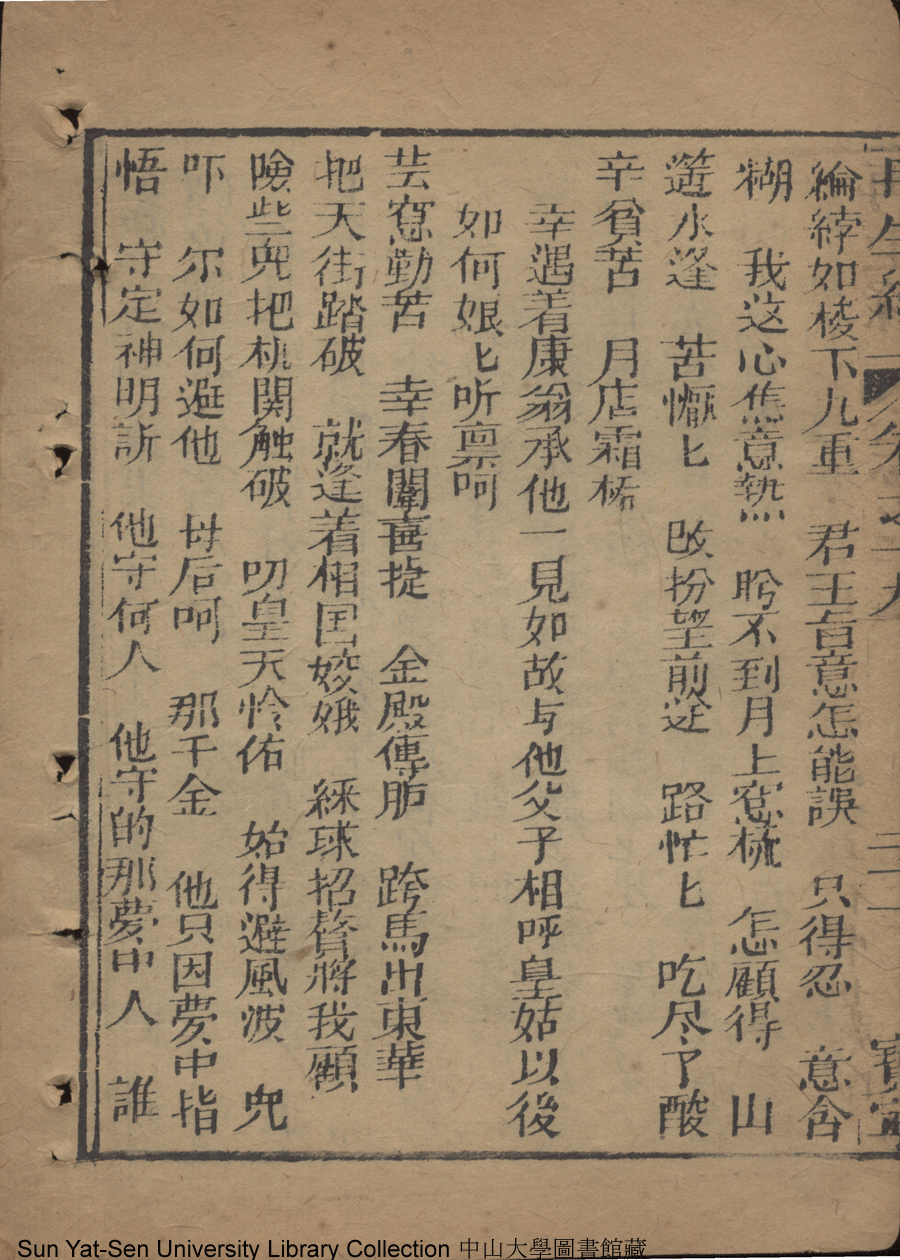 再生緣 卷之十九 三一 寳
綸綍如梭下九重 君王旨意怎能誤 只得忍 意含
糊 我这心焦意熱 盻不到月上窓梳 怎顧得 山
遥水逢 苦懨匕 改扮望前途 路忙匕 吃尽了酸
辛貧苦 月店霜桥
幸遇着康翁承他一見如故与他父子相呼皇姑以後
如何娘匕听禀呵
芸窓勤苦 幸春闈喜捷 金殿傳胪 跨馬出東華
把天街踏破 就逢着相国姣娥 綵球招贅將我顧
險些兜把机関触破 叨皇天怜佑 始得避風波 兜
吓 尔如何逛他 母后呵 那千金 他只因夢中指
悟 守定神明訴 他守何人 他守的那夢中人 誰
Sun Yat-Sen University Library Collection 中山大學圖書館藏